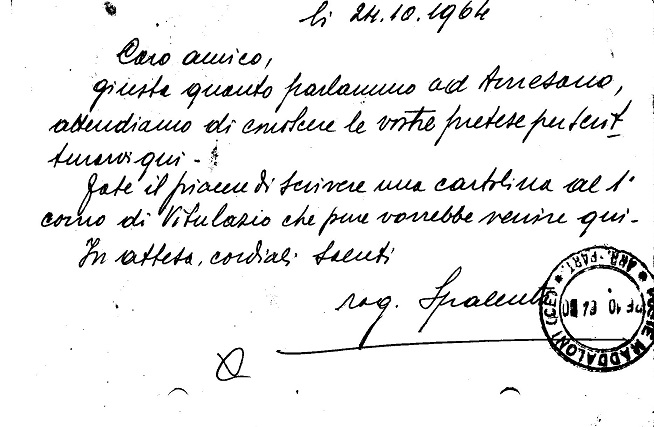 li 24.10.1964
Caro amico,
giusta quanto parlammo ad Arnesano,
attendiamo di conoscere le vostre pretese per scrit-
turarvi qui -
Fate il piacere di scrivere una cartolina al 1°
corno di Vitulazio che pure vorrebbe venire qui -
In attesa, cordiali saluti
rag.
MADDALONI (CE) * ARR. - PART. *